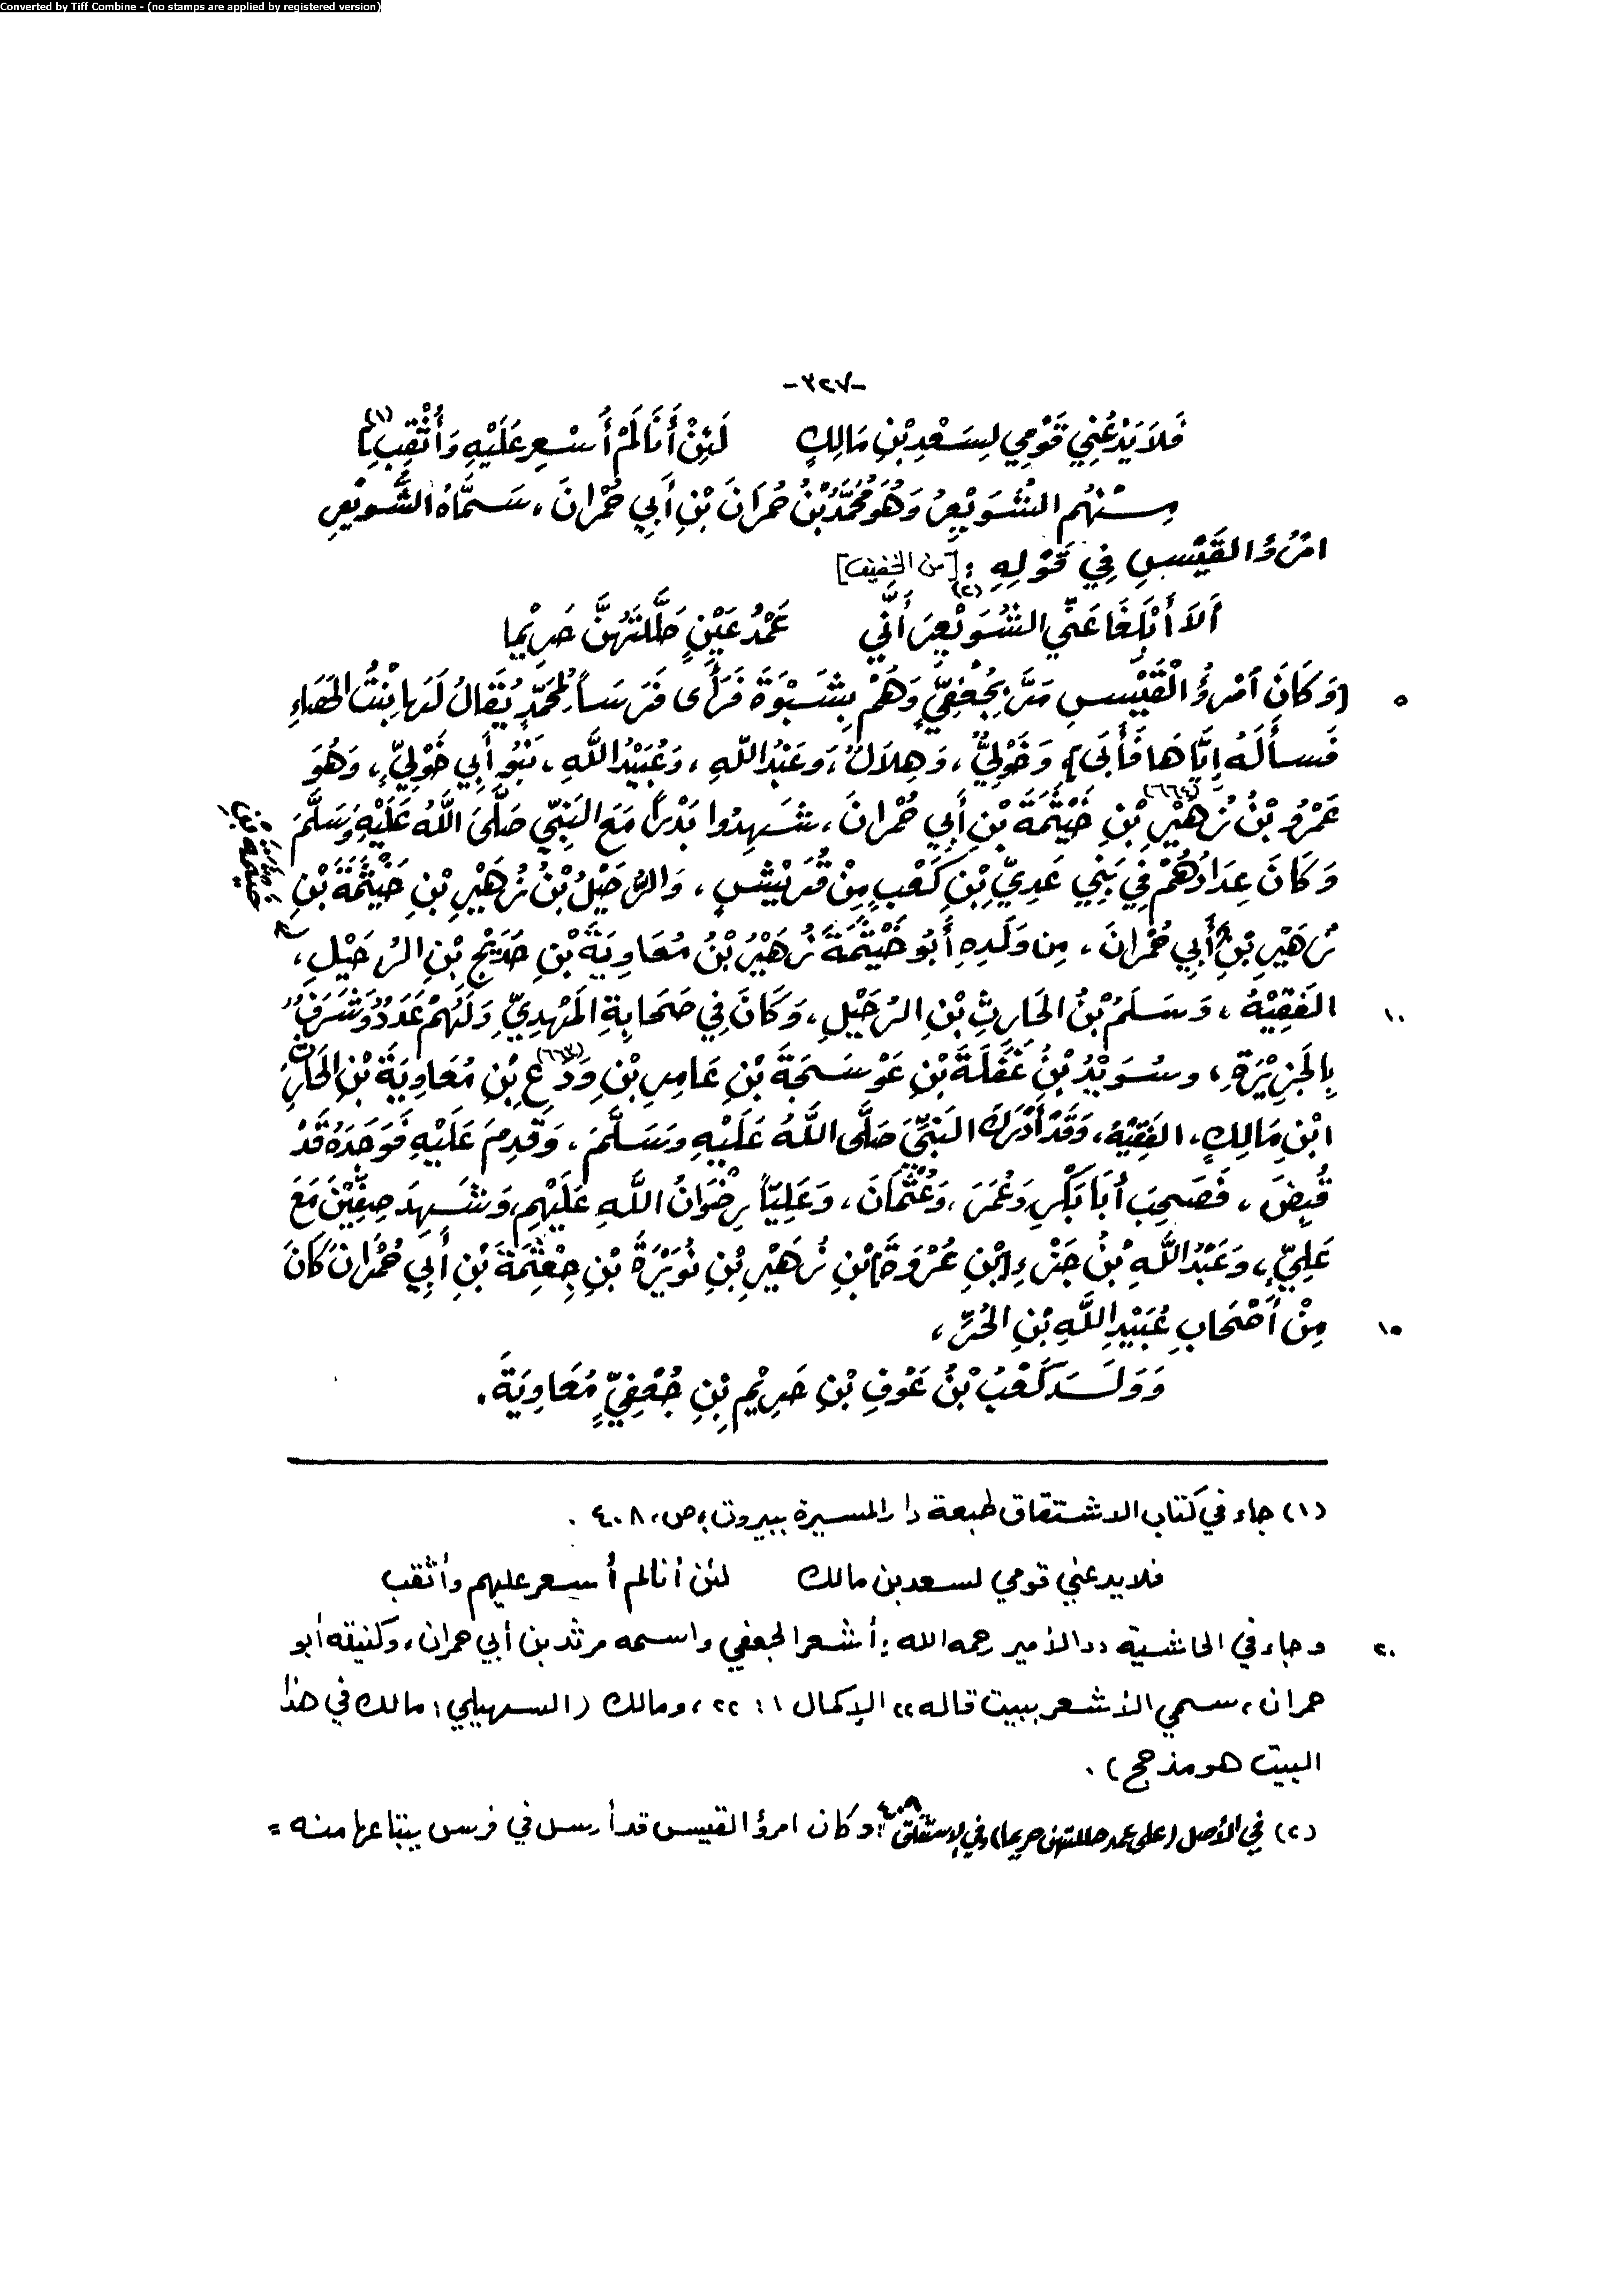 Converted by Tiff Combine - (no stamps are applied by registered version)
-٣٢٧-
فَلاَ يَدْعُنِي قَوْمِي لِسَعْدِ بْنِ مَالِكٍ لَئِنْ أَنَا لَمْ أَسْعِرْ عَلَيْهِ وَأُثْقِبِ](١)
مِنْهُم الشُّوَيْعِرُ وَهُوَ مُحَمَّدُ بْنُ حُمْرَانَ بْنِ أَبِي حُمْرَانَ، سَمَّاهُ الشُّوَيْعِرَ
امْرُؤُ القَيْسِ فِي قَوْلِهِ: [من الخفيف]
أَلاَ أَبْلِغَا عَنِّي الشُّوَيْعِرَ أَنِّي(٢) عَمْدُ عَيْنٍ حَلَّلْتُهُنَّ حَرِيْما
٥ [وَكَانَ امْرؤُ الْقَيْسِ مَرَّ بِجُعْفِيٍّ وَهُمْ بِشَبْوَةَ فَرَأَى فَرَساً لِمُحَمَّدٍ يُقَالُ لَهَا بِنْتُ الحَصَاءِ
فَسأَلَهُ إِيَّاهَا فَأَبَى] وَخَوْلِيٌّ، وَهِلاَلٌ، وَعَبْدُ اللَّهِ، وَعُبَيْدُ اللَّهِ، بَنُو أَبِي خَوْلِيٍّ، وَهُوَ
عَمْرُو بْنُ زُهَيْرِ بْنِ (٦٦٤) خَيْثَمَةَ بْنِ أَبِي حُمْرَانَ، شَهِدُوا بَدْراً مَعَ النَبِيِّ صَلَّى اللَّهُ عَلَيْهِ وَسَلَّمَ
وَكَانَ عِدَادُهُمْ فِي بَنِي عَدِيِّ بْنِ كَعْبٍ مِنْ قُرَيْشٍ، وَالرُحَيْلُ بْنُ زُهَيْرِ بْنِ خَيْثَمَةَ بْنِ
زُهَيْرِ بْنِ أَبِي حُمْرَانَ، مِن وَلَدِهِ أَبُو خَيْثَمَةَ زُهَيْرُ بْنُ مُعَاوِيَةَ بْنِ حُدَيْجِ بْنِ الرُحَيْلِ،
١٠ الفَقِيْهُ، وَسَلَمُ بْنُ الحَارِثِ بْنِ الرُحَيْلِ، وَكَانَ فِي صَحَابَةِ المَهْدِيِّ وَلَهُمْ عَدَدٌ وَشَرَفٌ
بِالجَزِيْرَةِ، وسُوَيْدُ بْنُ غَفَلَةَ بْنِ عَوْسَجَةَ بْنِ عَامِرِ بْنِ وَدَاعِ (٦٦٣) بْنِ مُعَاوِيَةَ بْنِ الحَارِثِ
ابْنِ مَالِكٍ، الفَقِيْهُ، وَقَدْ أَدْرَكَ النَبِيَّ صَلَّى اللَّهُ عَلَيْهِ وَسَلَّمَ، وَقَدِمَ عَلَيْهِ فَوَجَدَهُ قَدْ
قُبِضَ، فَصَحِبَ أَبَا بَكْرٍ وَعُمَرَ، وَعُثْمَانَ، وَعَلِيّاً رِضْوَانُ اللَّهِ عَلَيْهِم، وَشَهِدَ صِفِّيْنَ مَعَ
عَلِيٍّ، وَعَبْدُ اللَّهِ بْنُ جَزْءِ ابْنِ عُرْوَةَ بْنِ زُهَيْرِ بْنِ نُوَيْرَةَ بْنِ جِعْثِمَةَ بْنِ أَبِي حُمْرَانَ كَانَ
١٥ مِنْ أَصْحَابِ عُبَيْدِ اللَّهِ بْنِ الحُرِّ،
وَوَلَدَ كَعْبُ بْنُ عَوْفِ بْنِ حَرِيْمِ بْنِ جُعْفِيٍّ مُعَاوِيَةَ.
(١) جاء في كتاب الاشتقاق طبعة دار المسيرة ببيروت، ص، ٤٠٨.
فلا يدعني قومي لسعد بن مالك لئن أنا لم أسعر عليهم وأثقب
٢٠ وجاء في الحاشية ،،الأمير رحمه الله: أشعر الجعفي واسمه مرثد بن أبي حمران، وكنيته أبو
حمران، سمي الأشعر ببيت قاله،، الإكمال ١: ٢٢، ومالك (السهيلي: مالك في هذا
البيت هو مذحج).
(٢) في الأصل (على عمد حللتهن حريما) وفي الإشتقاق ٤٠٨: وكان امرؤ القيس قد أرسل في فرس يبتاعها منه =